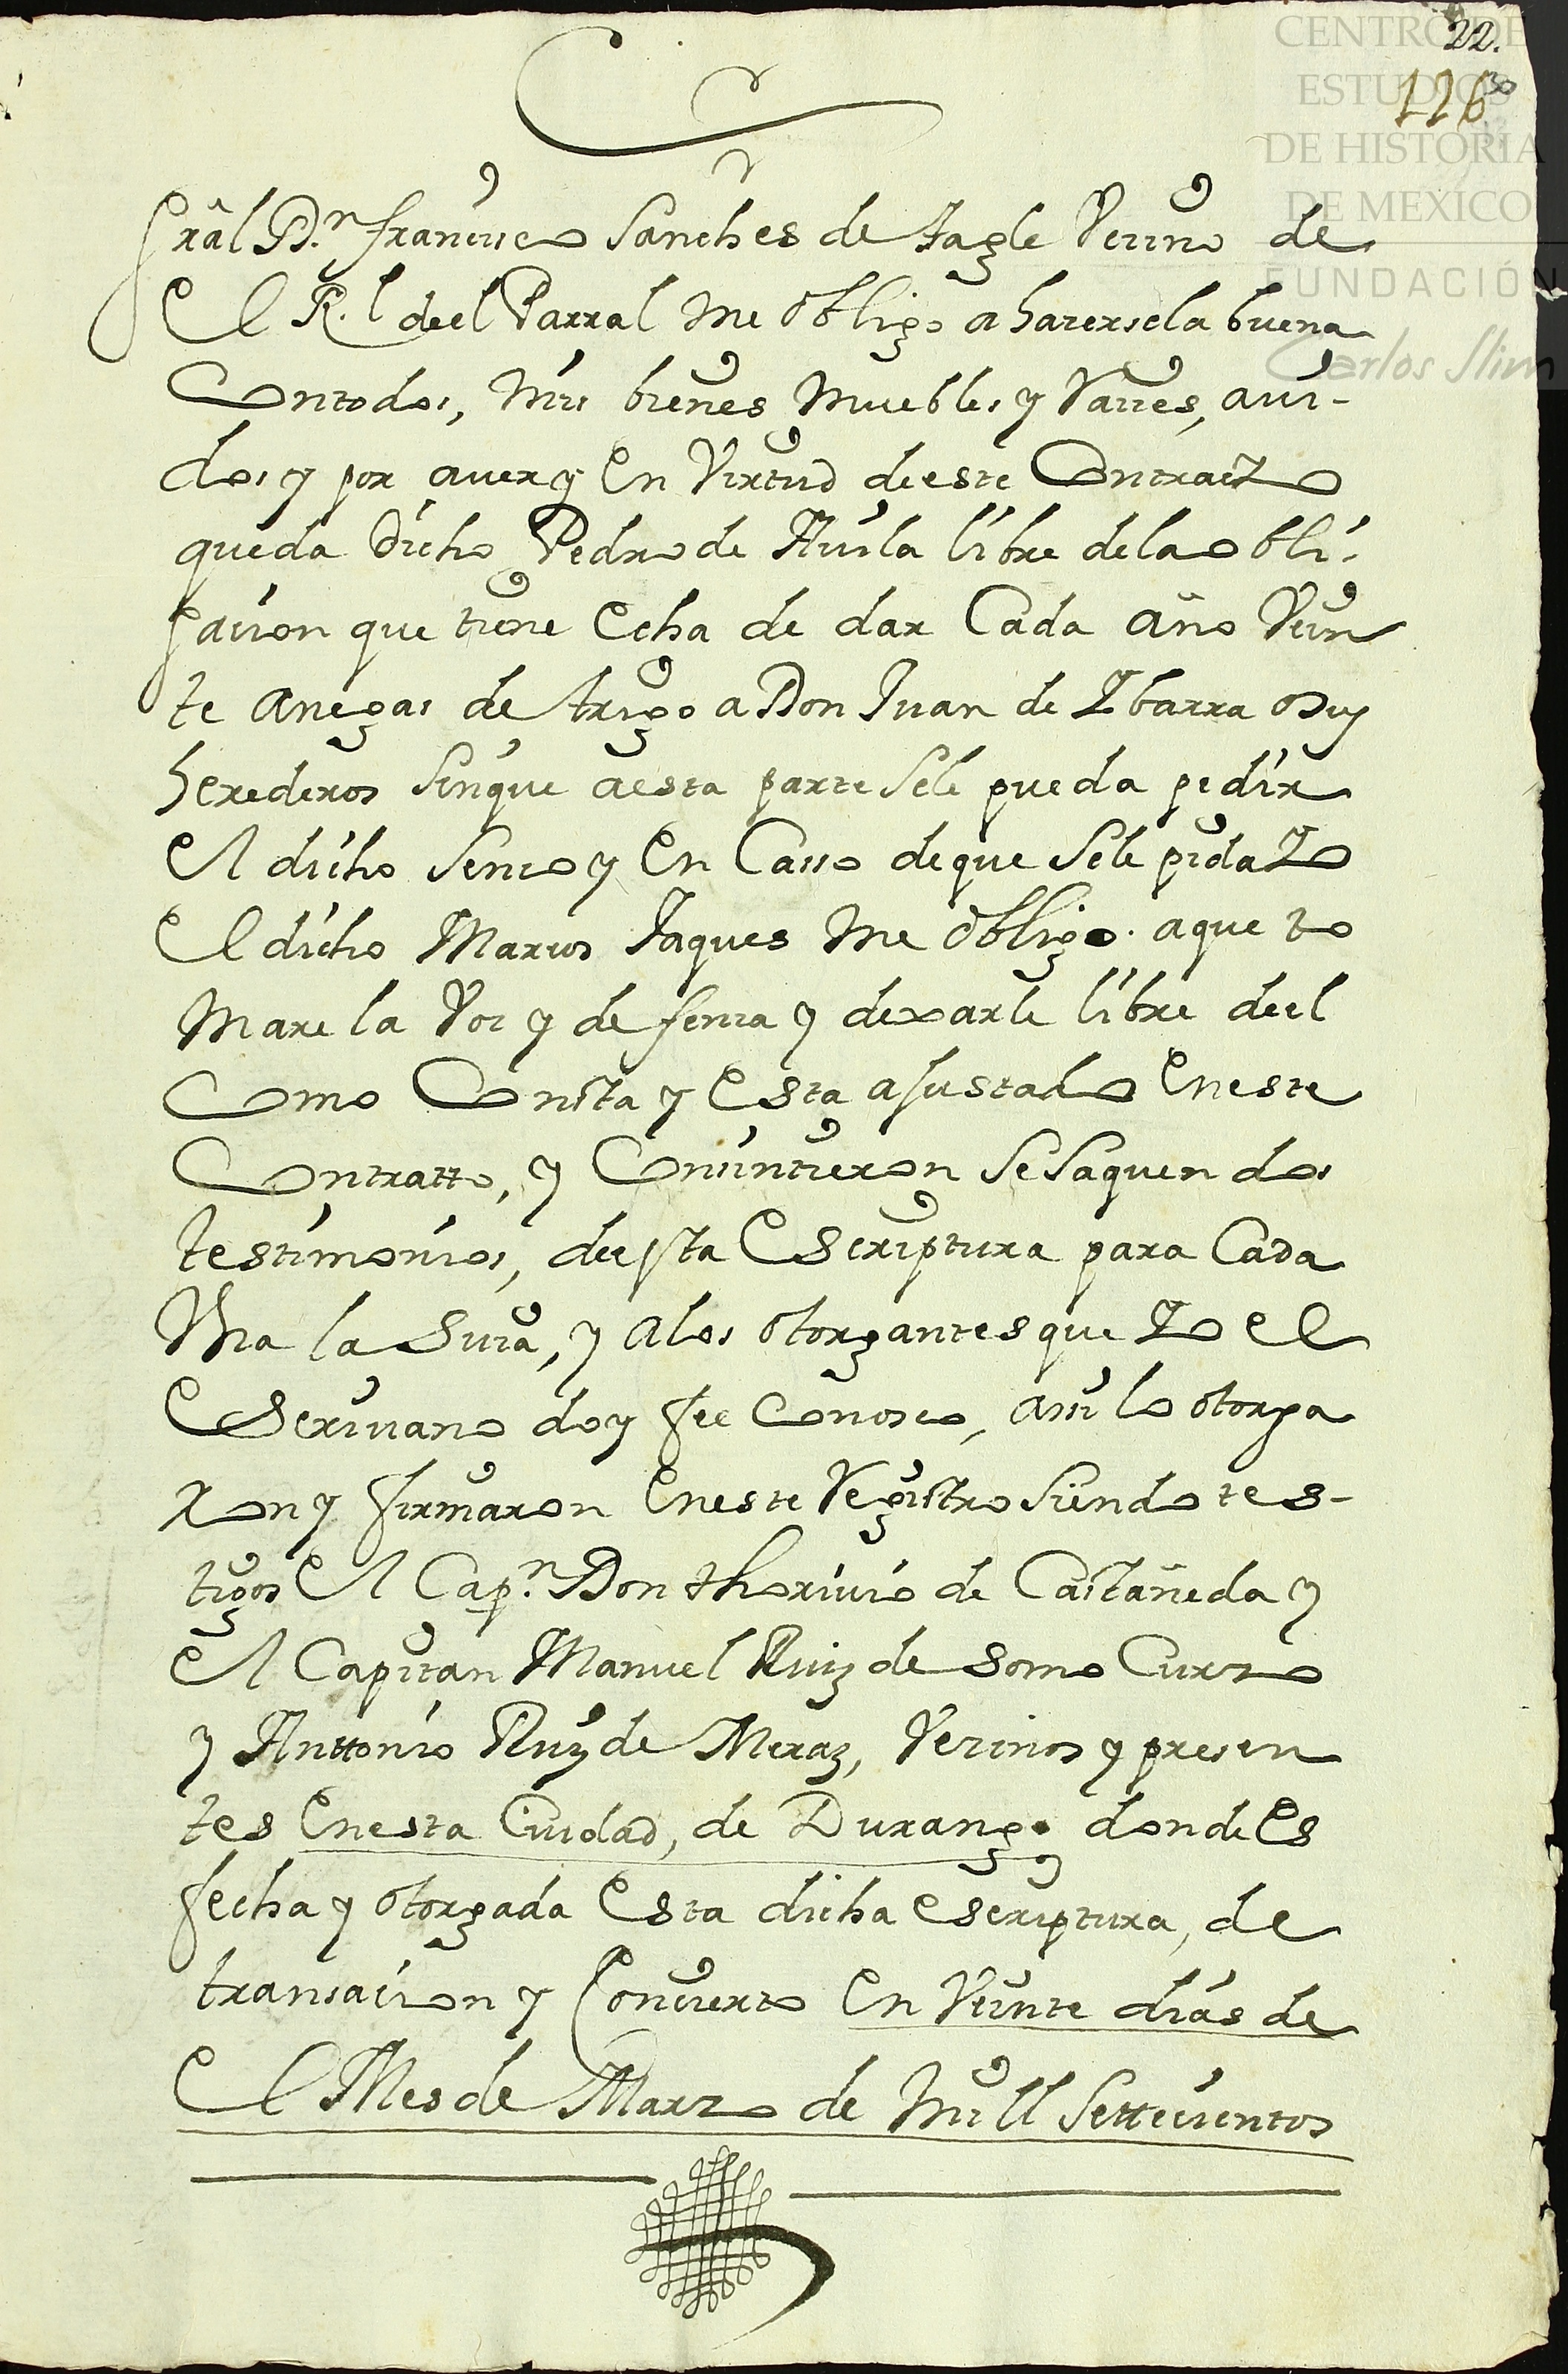 22.
126
CENTRO DE
ESTUDIOS
DE HISTORIA
DE MEXICO
FUNDACIÓN
Carlos Slim
Grâl D.n francisco Sanches de tagle Vecino de
El R.l deel Parral me obligo a hacersela buena
Contodos, mis bienes muebles y Raices, avi-
dos y por aver y En Virtud deeste Contracto
queda dicho Pedro de Auila libre dela obli-
gacion que tiene Echa de dar Cada año Vein
te anegas de trigo a Don Juan de Ybarra o sus
herederos sinque aesta parte sele pueda pedir
El dicho senso y En Casso deque sele pida Yo
El dicho Marcos Jaques me obligo aque to
mare la Voz y defensa y dexarle libre deel
Como Consta y Esta ajustado Eneste
Contratto, y Consintieron se saquen dos
testimonios, deesta Escriptura para Cada
Vna la Suia, y alos otorgantes que Yo El
Escriuano doy fee Conosco, assi lo otorga
ron y firmaron Eneste Registro siendo tes-
tigos El Cap.n Don thoriuio de Castañeda y
El Capitan Manuel Ruiz de Somo Curzo
y Anttonio Ruiz de Meraz, Vecinos y presen
tes Enesta Ciudad, de Durango donde Es
fecha y otorgada Esta dicha escriptura, de
transacion y Concierto En Veinte dias de
El Mes de Marzo de mill Settecientos